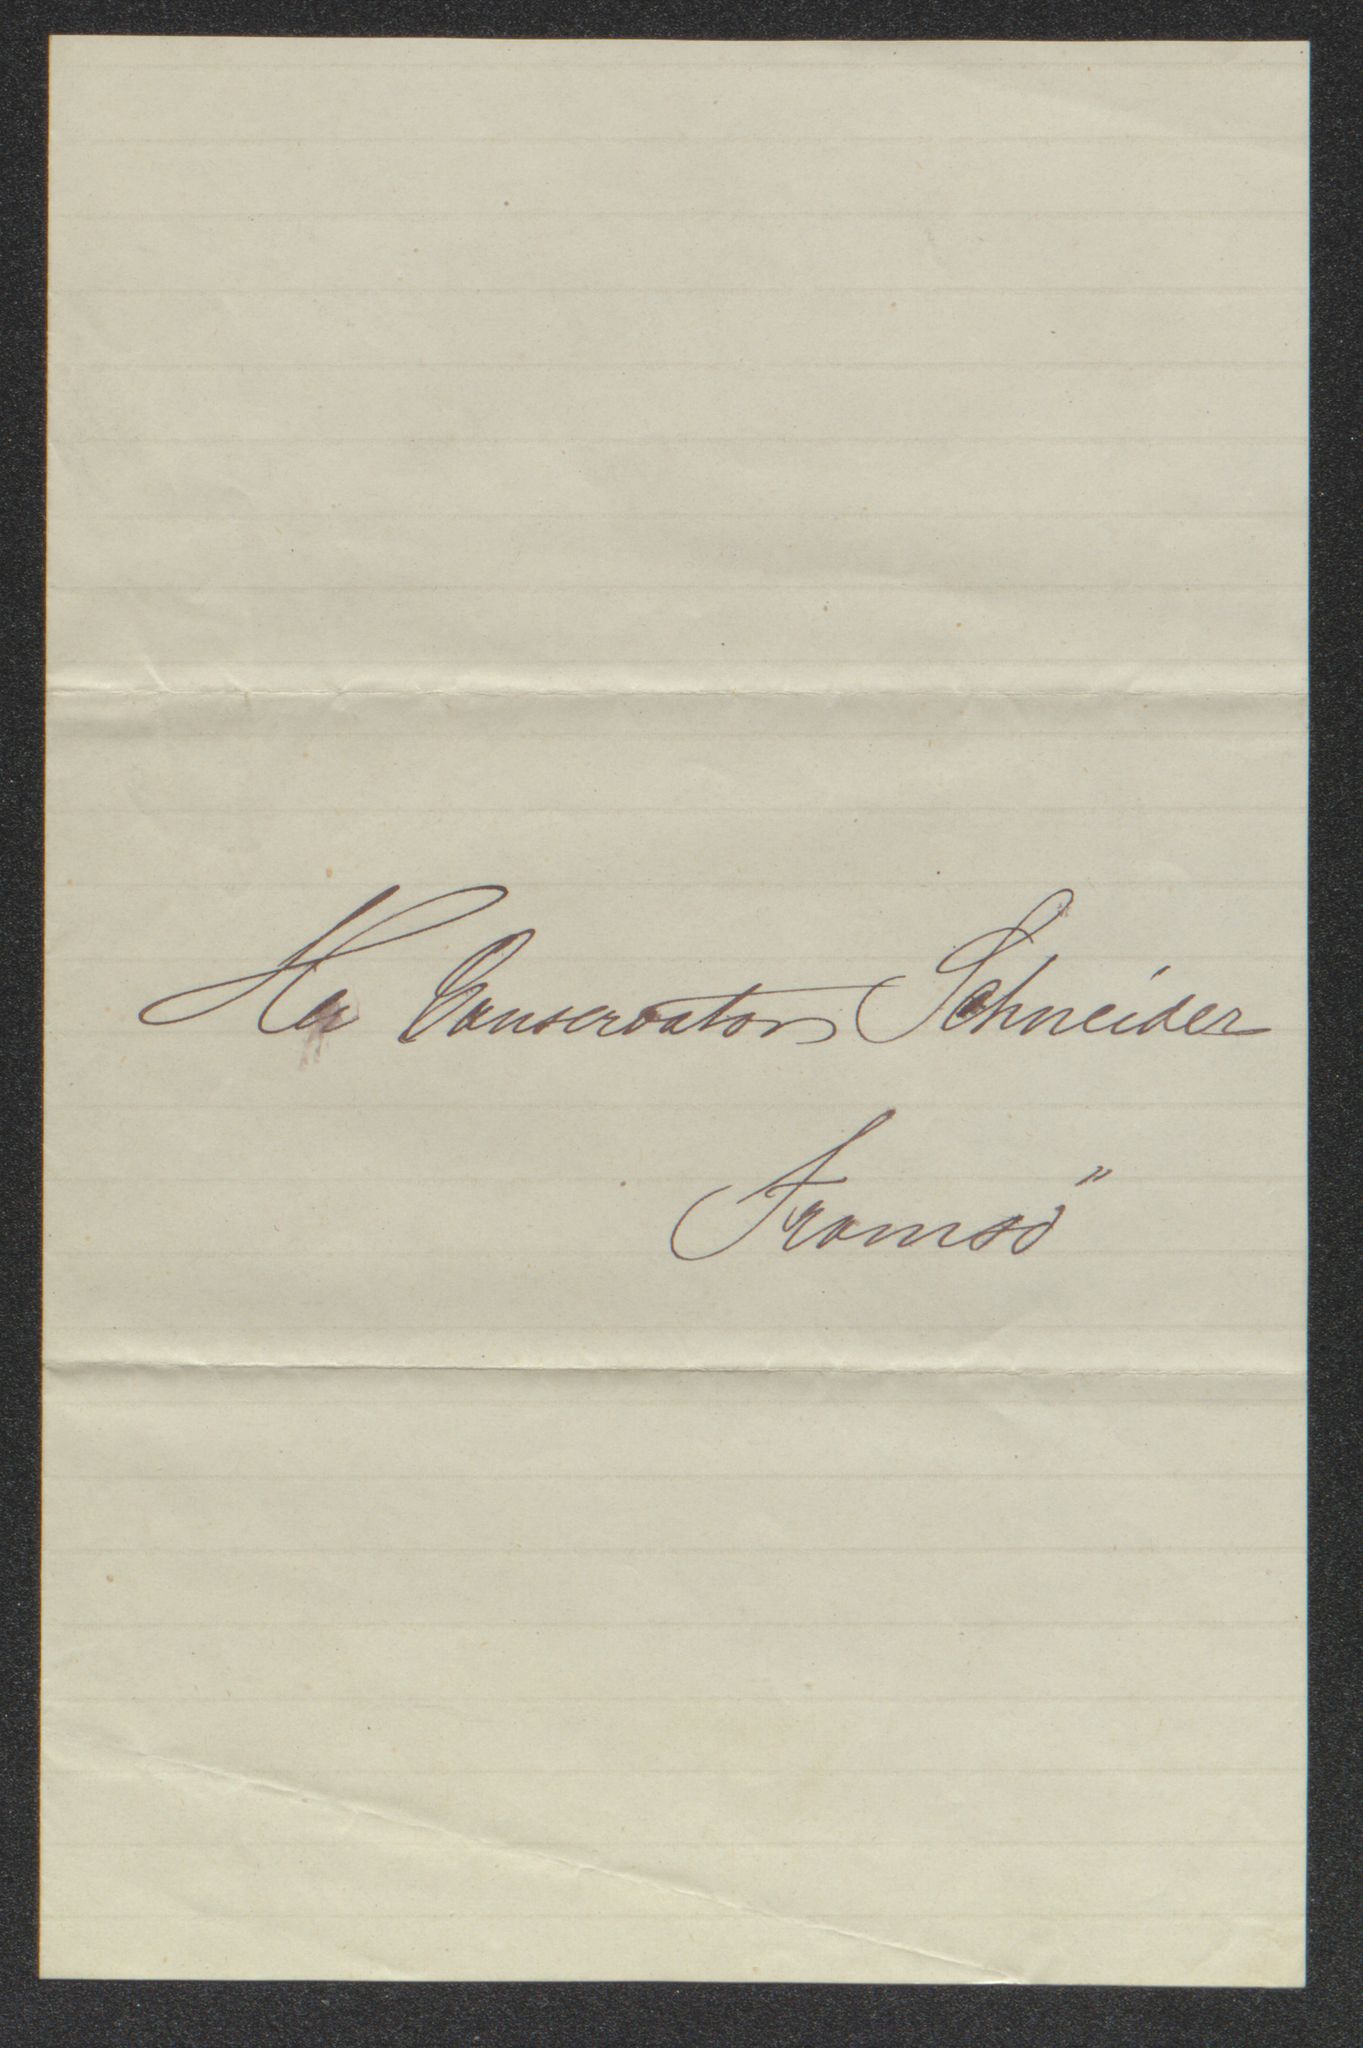 Hr Conservator Schneider
Tromsö